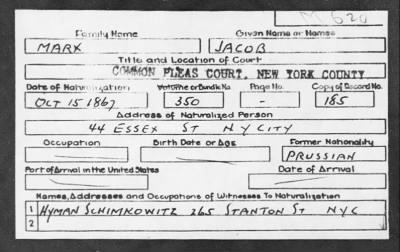 M 620
Family Name Given Name or Names
MARX JACOB
Title and Location of Court
COMMON PLEAS COURT, NEW YORK COUNTY
Date of Naturalization Volume or Bundle No. Page No. Copy of Record No.
OCT 15 1867 350 - 185
Address of Naturalized Person
44 ESSEX ST N Y CITY
Occupation Birth Date or Age Former Nationality
PRUSSIAN
Port of Arrival in the United States Date of Arrival
Names, Addresses and Occupations of Witnesses To Naturalization
1 HYMAN SCHIMKOWITZ 265 STANTON ST NYC
2